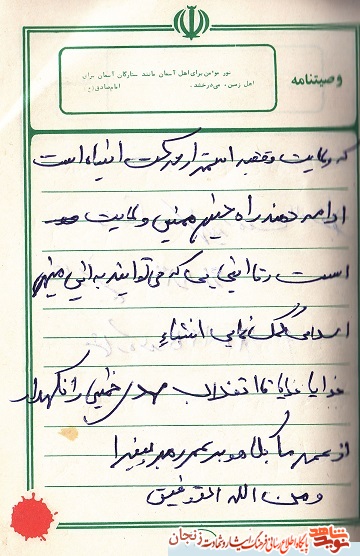 وصیتنامه
نور مؤمن برای اهل آسمان مانند ستارگان آسمان برای
اهل زمین، می‌درخشد. امام صادق (ع)
که ولایت فقیه استمرار حرکت انبیاء است
ادامه دهنده راه خمینی و ولایت
است و تا آنجایی که می‌توانید به این
اسلامی کمک نمایی انشاءا
خدایا خدایا تا انقلاب مهدی خمینی را نگهدار
از عمر ما بکاه و بر عمر رهبر بیفزا
و من الله التوفیق
پایگاه اطلاع رسانی فرهنگ ایثار و شهادت زنجان
نوید شاهد